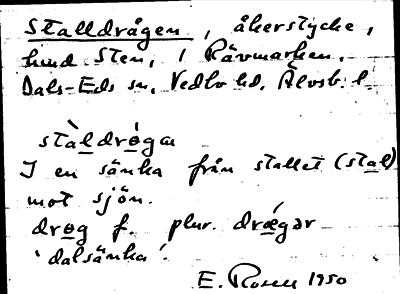 Stalldrågen, åkerstycke,
hmd Sten, i Rävmarken.
Dals-Eds sn, Vedbo hd, Älvsb. l.
stàldrǿga
I en sänka från stallet (stal)
mot sjön.
drøg f. plur. drǽgər
'dalsänka'.
E. Rosell 1950